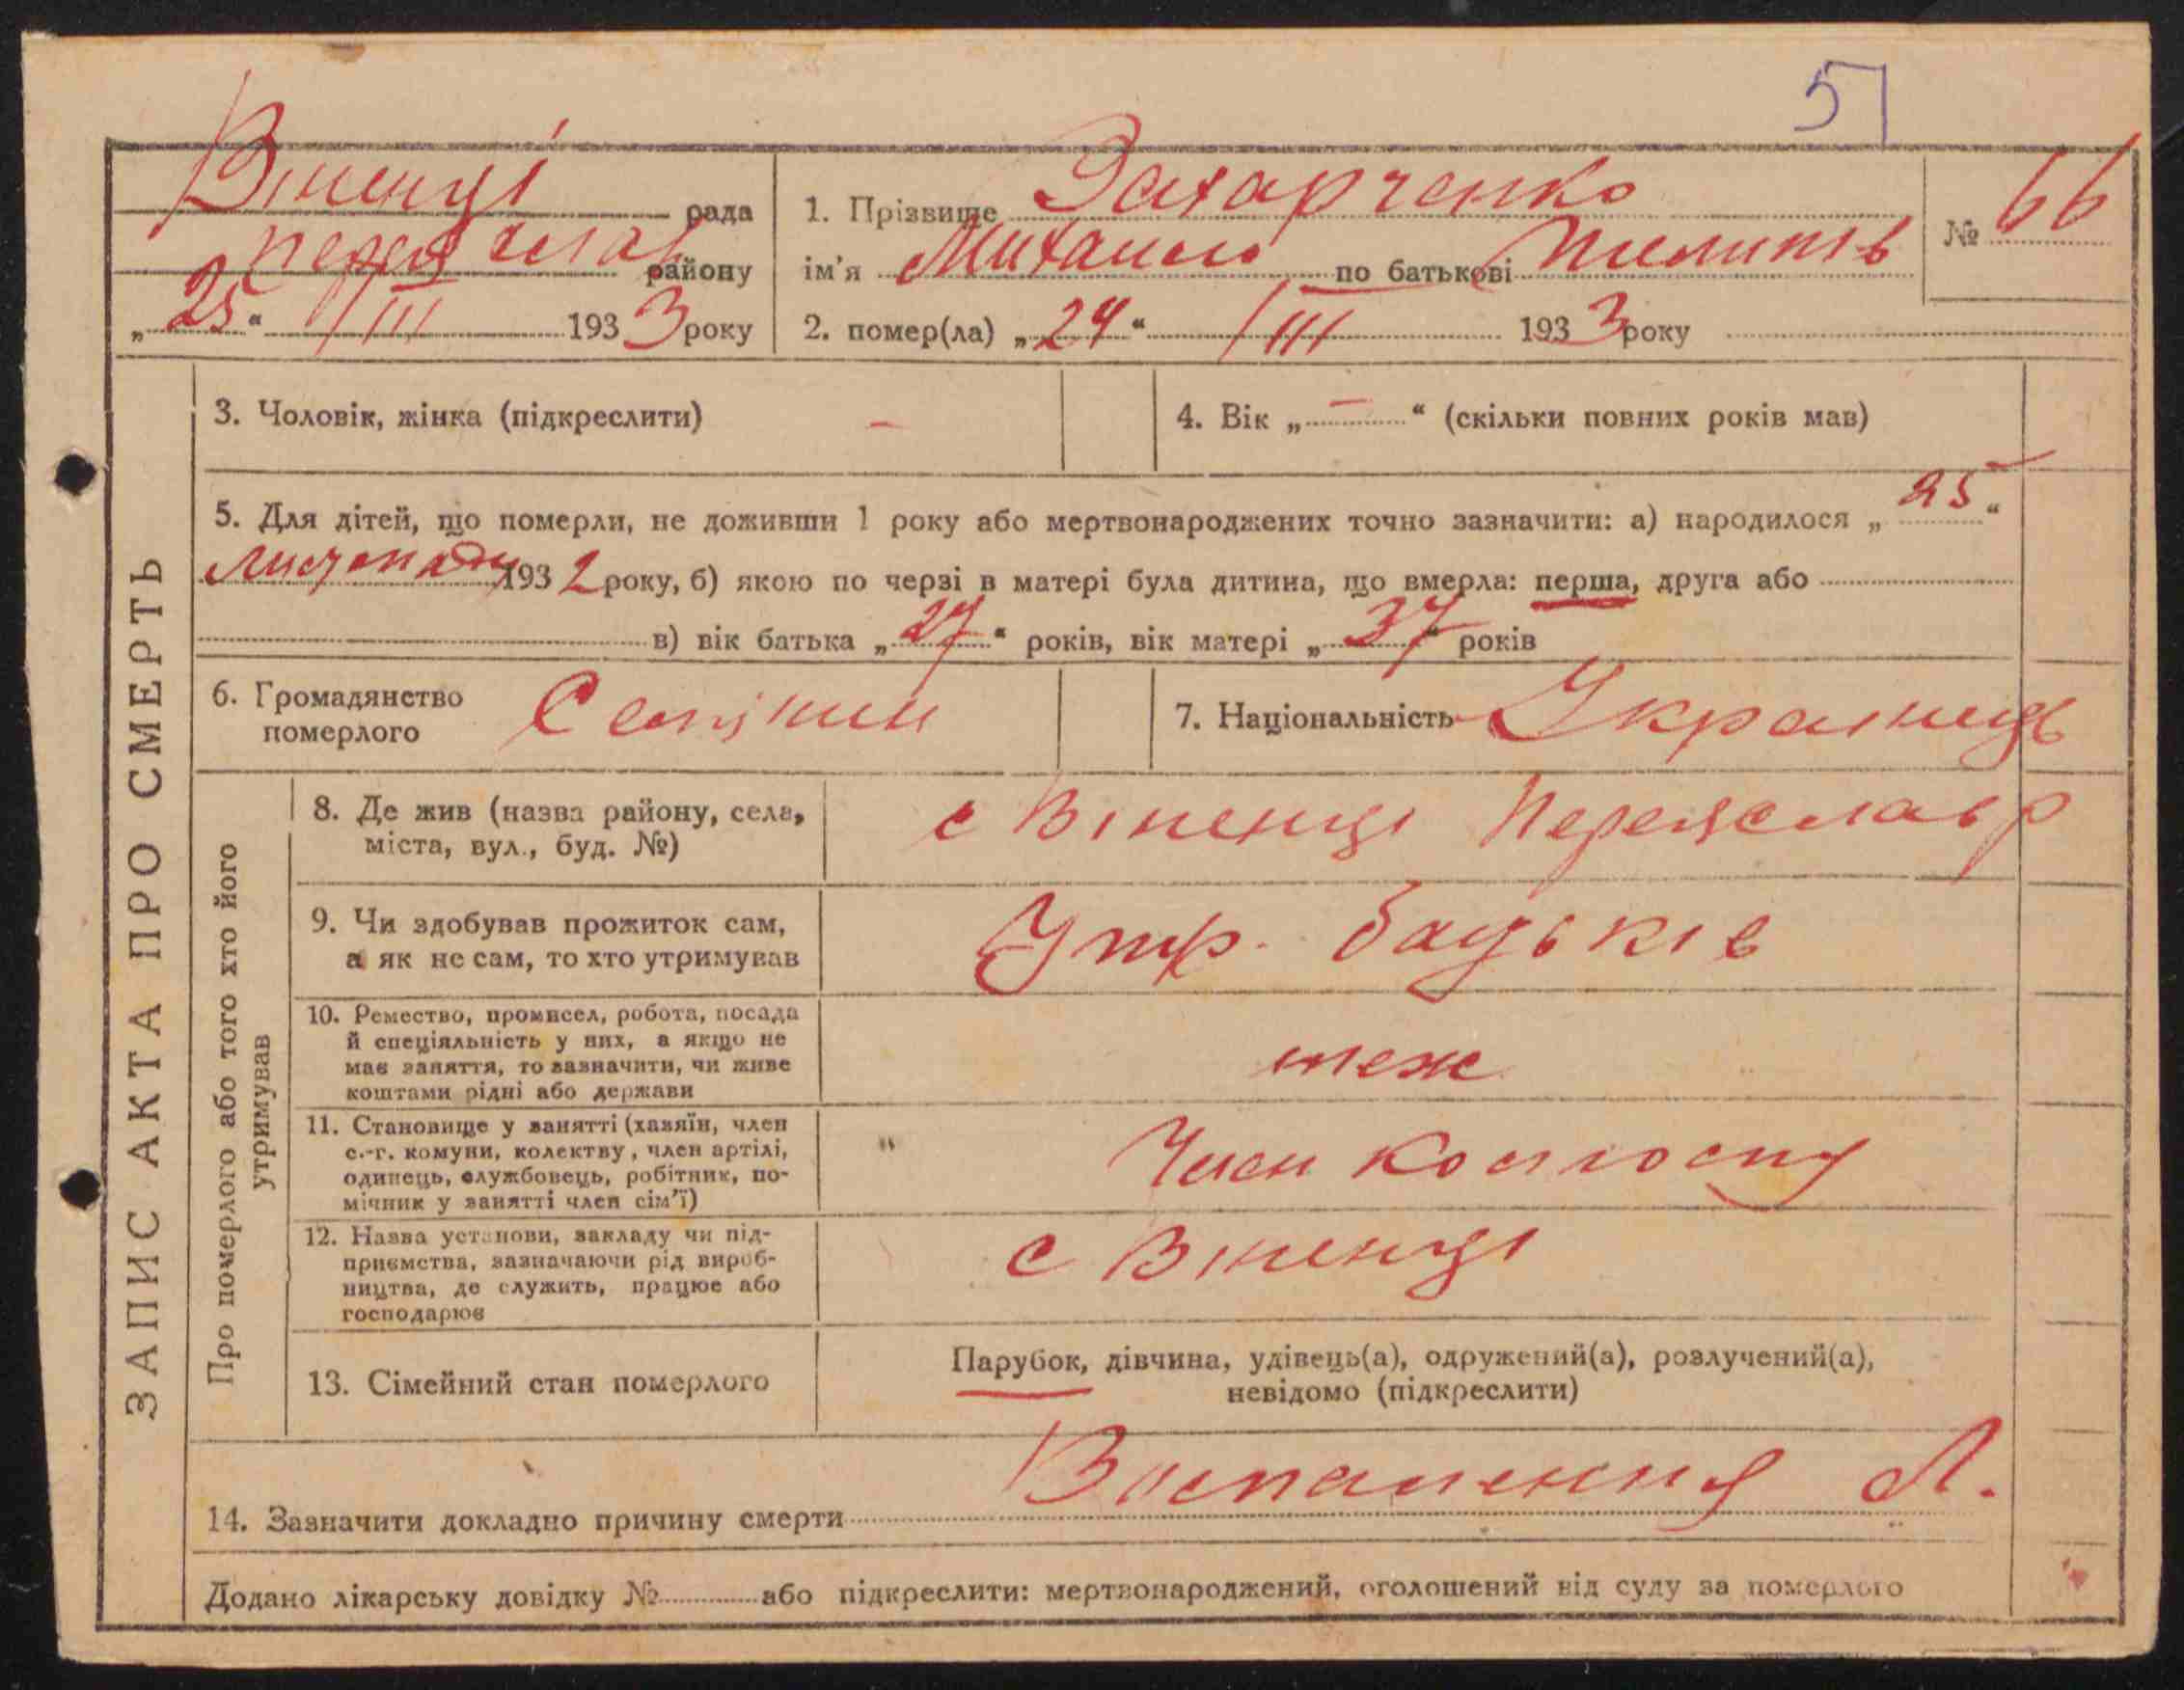 51
Віненці рада
Переяслав району
„25“ /III 1933 року
1. Прізвище Захарченко
ім'я Михайло по батькові Пилипів
№ 66
2. помер(ла) „24“ /III 1933 року
ЗАПИС АКТА ПРО СМЕРТЬ
3. Чоловік, жінка (підкреслити) –
4. Вік „–“ (скільки повних років мав)
5. Для дітей, що померли, не доживши 1 року або мертвонароджених точно зазначити: а) народилося „25“
Листопаду 1932 року, б) якою по черзі в матері була дитина, що вмерла: перша, друга або
в) вік батька „27“ років, вік матері „37“ років
6. Громадянство
померлого
Селянин
7. Національність Українець
Про померлого або того хто його
утримував
8. Де жив (назва району, села,
міста, вул., буд. №)
с Віненці Переяслав р
9. Чи здобував прожиток сам,
а як не сам, то хто утримував
Утр. батьків
10. Ремество, промисел, робота, посада
й спеціяльність у них, а якщо не
має заняття, то зазначити, чи живе
коштами рідні або держави
теж
11. Становище у занятті (хазяїн, член
с.-г. комуни, колективу, член артілі,
одинець, службовець, робітник, по-
мічник у занятті член сім'ї)
Член колгоспу
12. Назва установи, закладу чи під-
приємства, зазначаючи рід вироб-
ництва, де служить, працює або
господарює
с Віненці
13. Сімейний стан померлого
Парубок, дівчина, удівець(а), одружений(а), розлучений(а),
невідомо (підкреслити)
14. Зазначити докладно причину смерти Воспалення Л.
Додано лікарську довідку № або підкреслити: мертвонароджений, оголошений від суду за померлого